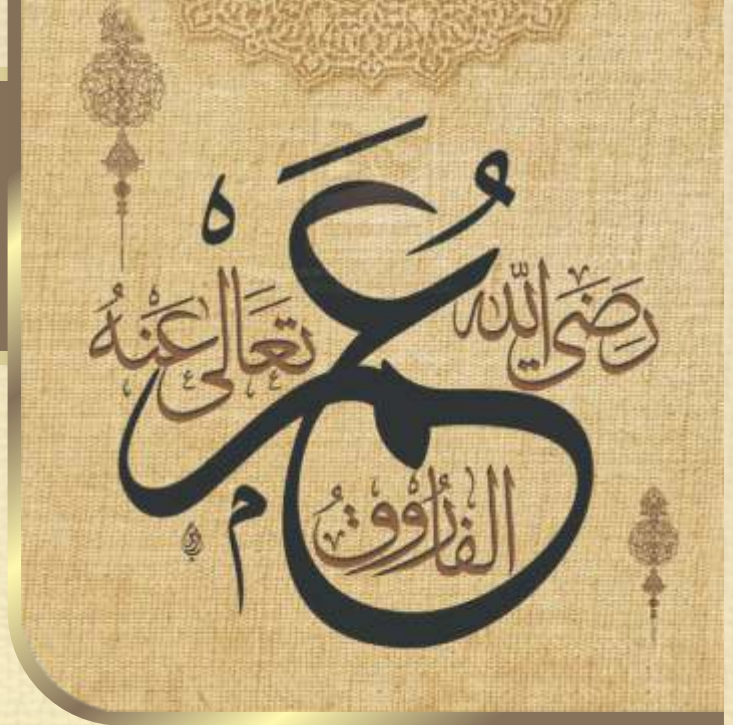 عُمَر
الفَارُوقُ
رَضَىَ اللّٰه تَعَالىٰ عَنْهُ